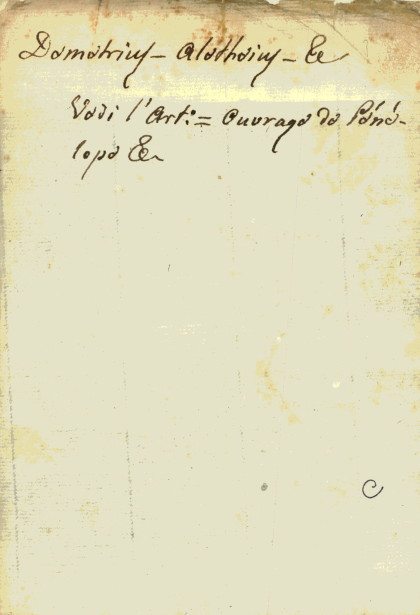 Demetrius - Aletheius - &c
Vedi l'Art.º = Ouvrage de Péné-
lope &c
C